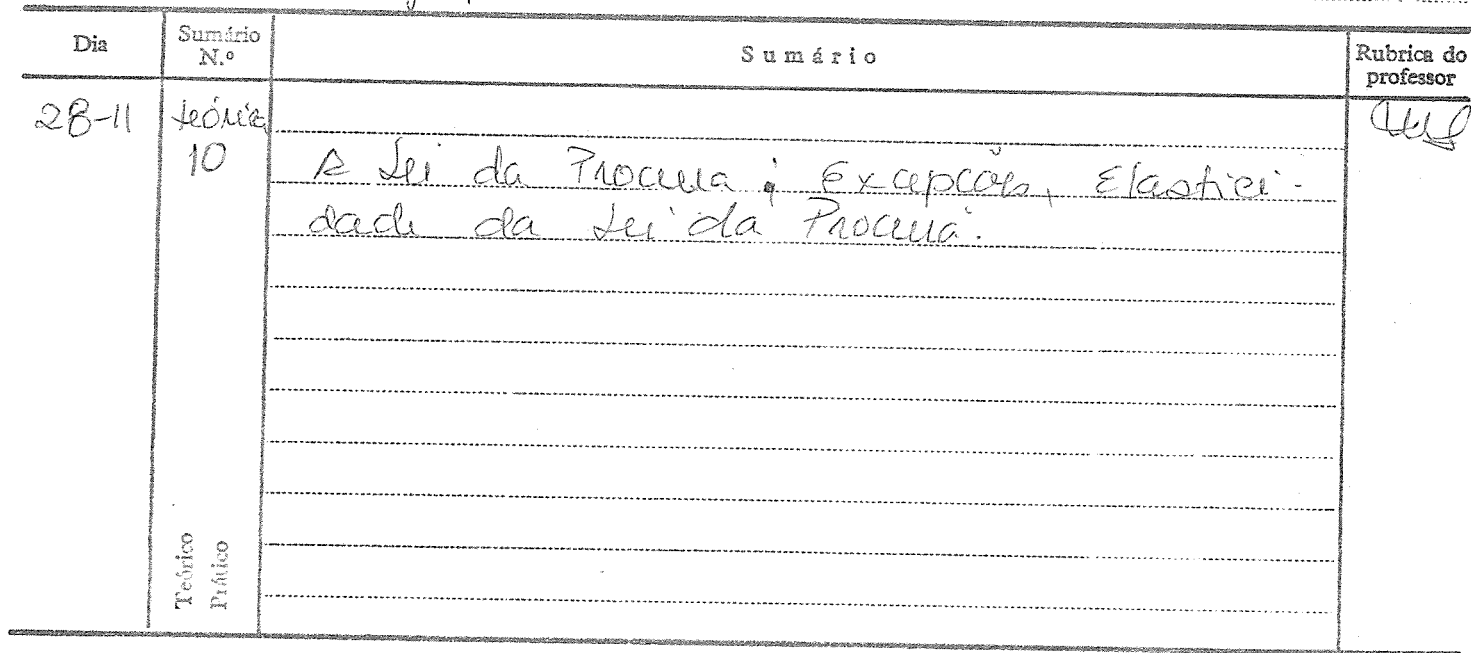 Dia
Sumário
N.º
Sumário
Rubrica do
professor
28-11
teórica
10
A Lei da Procura; Excepções, Elastici-
dade da Lei da Procura.
Teórico
Prático